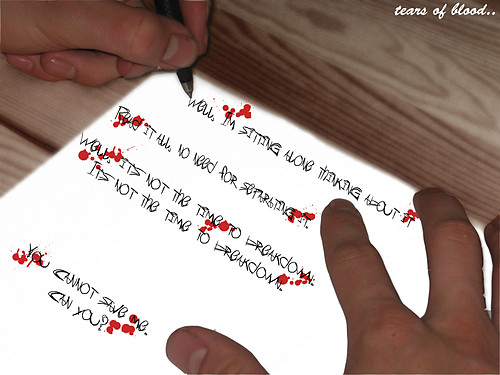 tears of blood..
WELL, I'M SITTING ALONE THINKING ABOUT IT
READ IT ALL, NO NEED FOR SEPARATING IT.
WELL, IT'S NOT THE TIME TO BREAKDOWN.
IT'S NOT THE TIME TO BREAKDOWN.
YOU CANNOT SAVE ME.
CAN YOU?